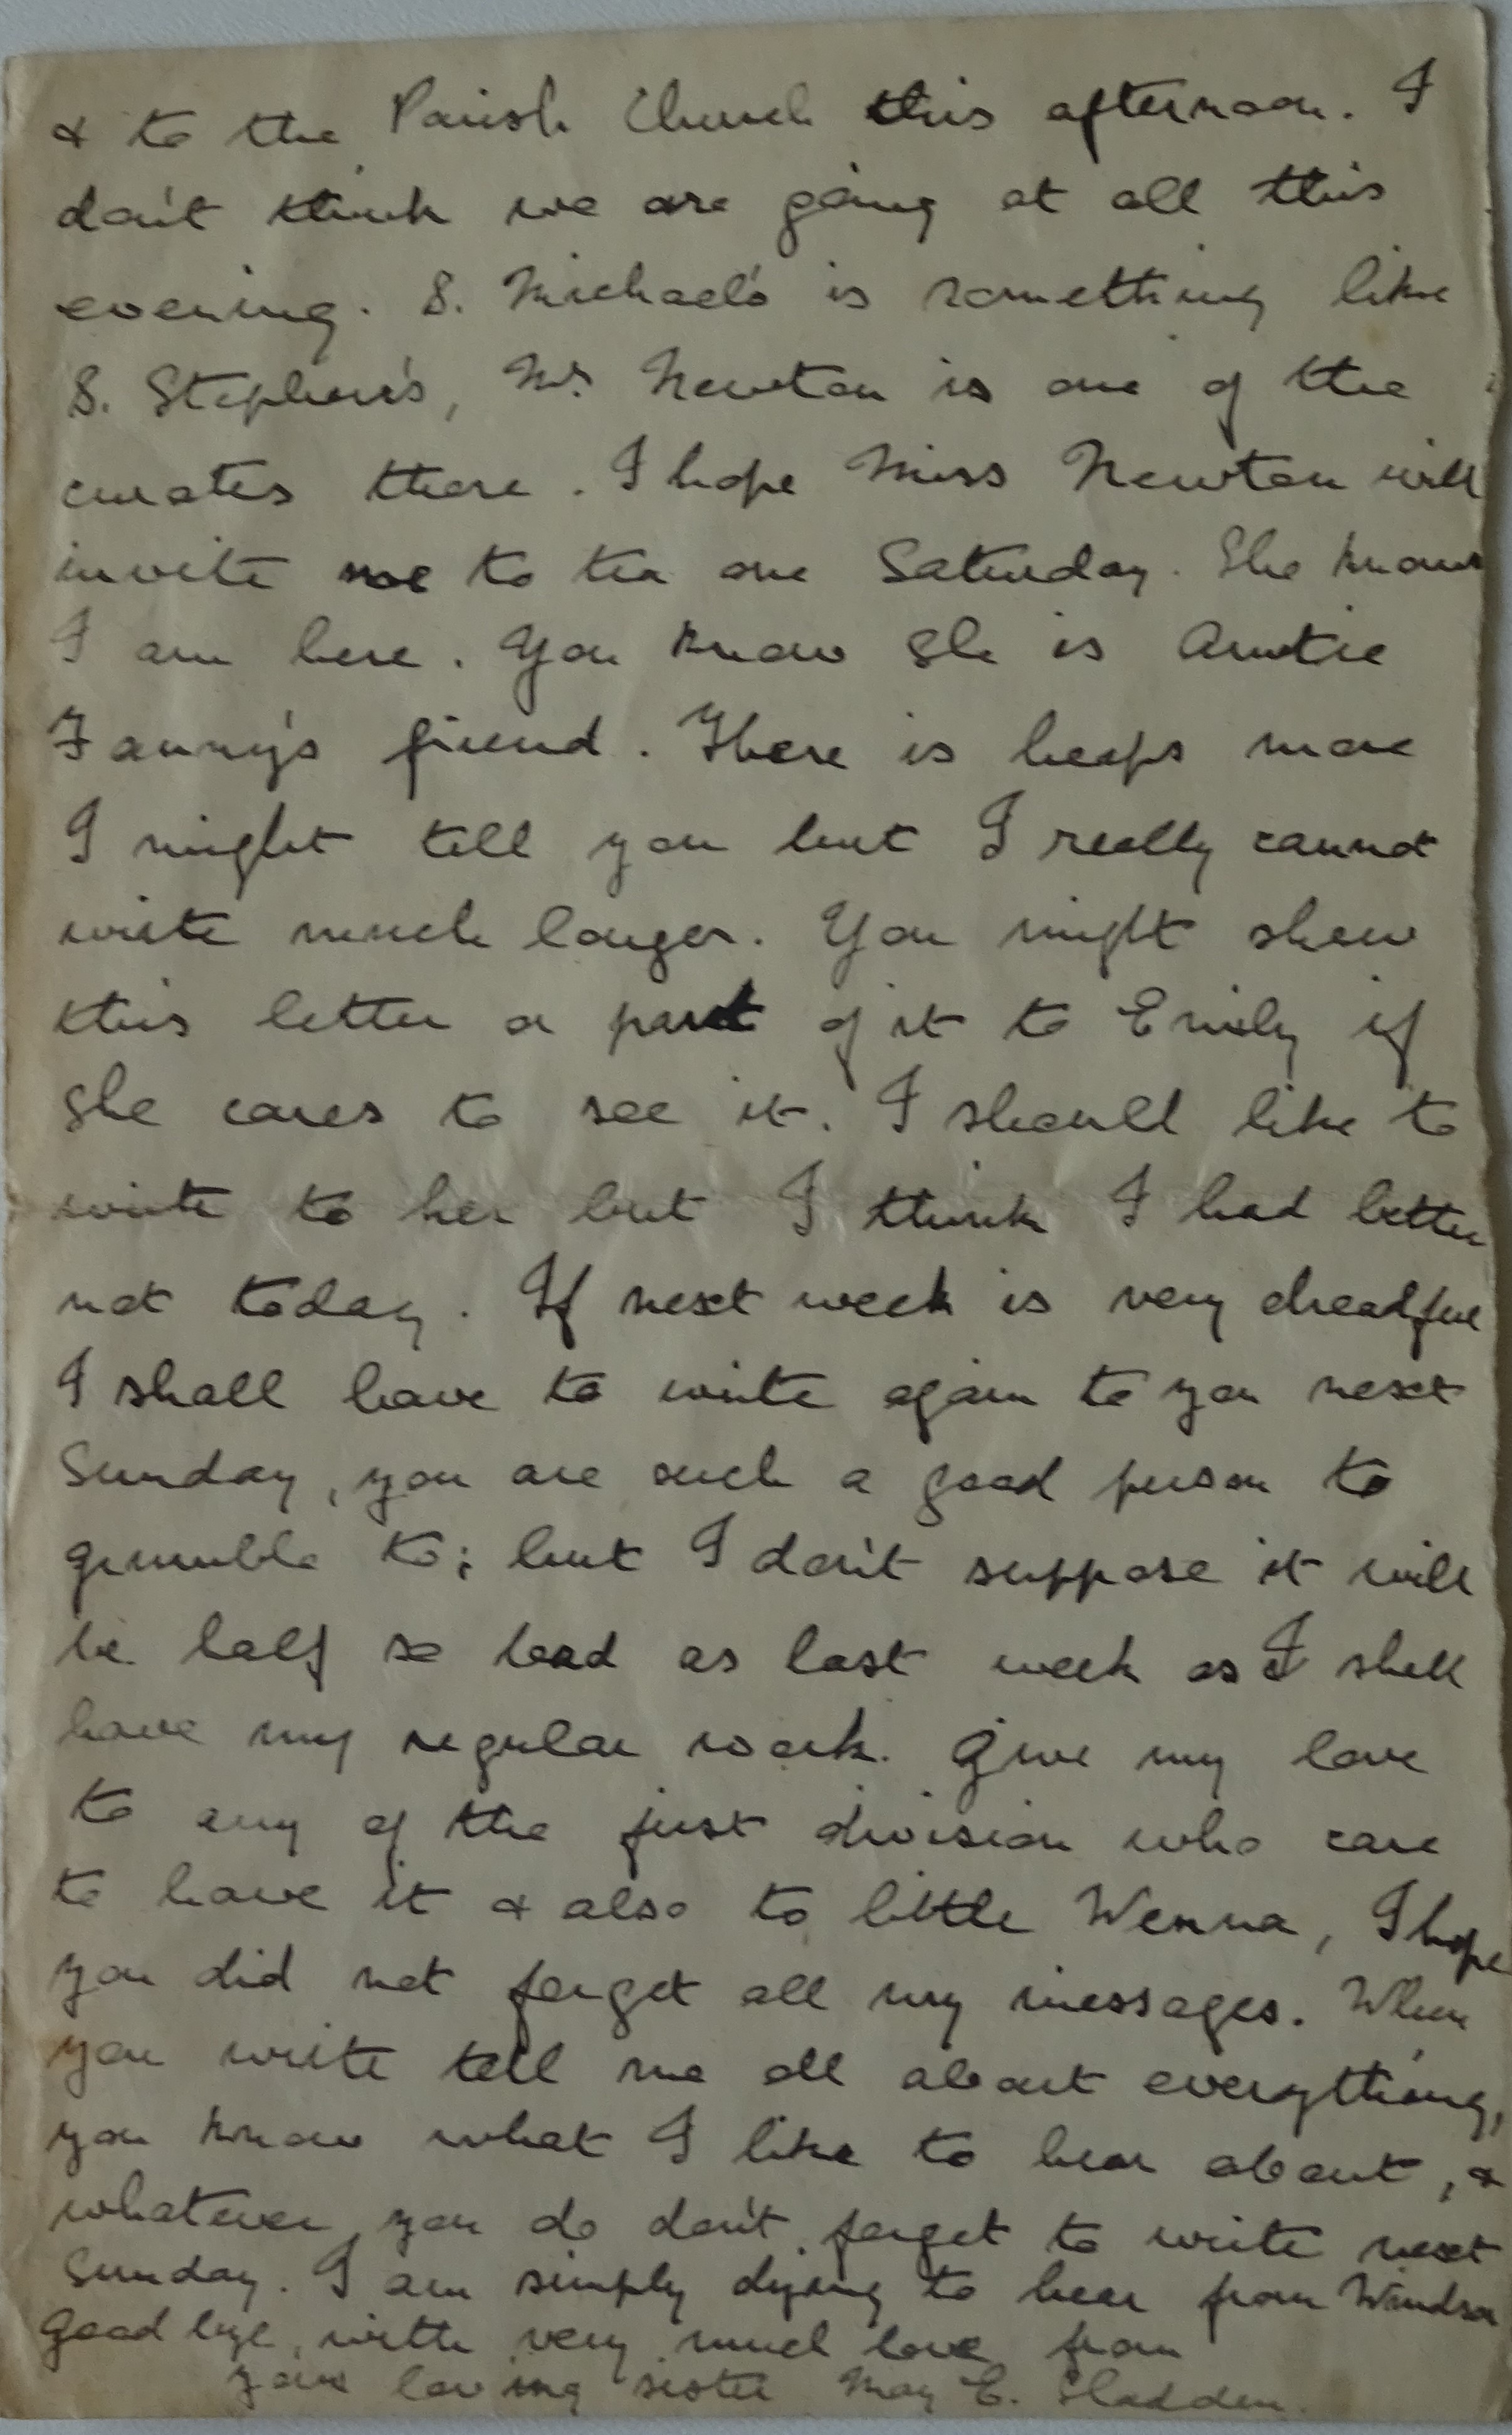 & to the Parish Church this afternoon. I
don't think we are going at all this
evening. S. Michael's is something like
S. Stephen's, Mr Newton is one of the
curates there. I hope Miss Newton will
invite me to tea one Saturday. She knows
I am here. You know she is Auntie
Fanny's friend. There is heaps more
I might tell you but I really cannot
write much longer. You might shew
this letter or part of it to Emily if
she cares to see it. I should like to
write to her but I think I had better
not today. If next week is very dreadful
I shall have to write again to you next
Sunday, you are such a good person to
grumble to; but I don't suppose it will
be half so bad as last week as I shall
have my regular work. Give my love
to any of the first division who care
to have it & also to little Wenna, I hope
you did not forget all my messages. When
you write tell me all about everything,
you know what I like to hear about, &
whatever you do don't forget to write next
Sunday. I am simply dying to hear from Windsor
Good bye, with very much love from
your loving sister May E. Sladden.